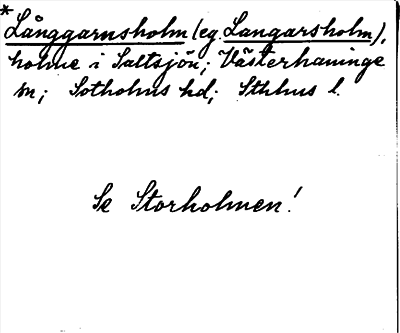 *
Långgarnsholm (eg. Langarsholm),
holme i Saltsjön; Västerhaninge
sn; Sotholms hd; Sthlms l.
Se Storholmen!